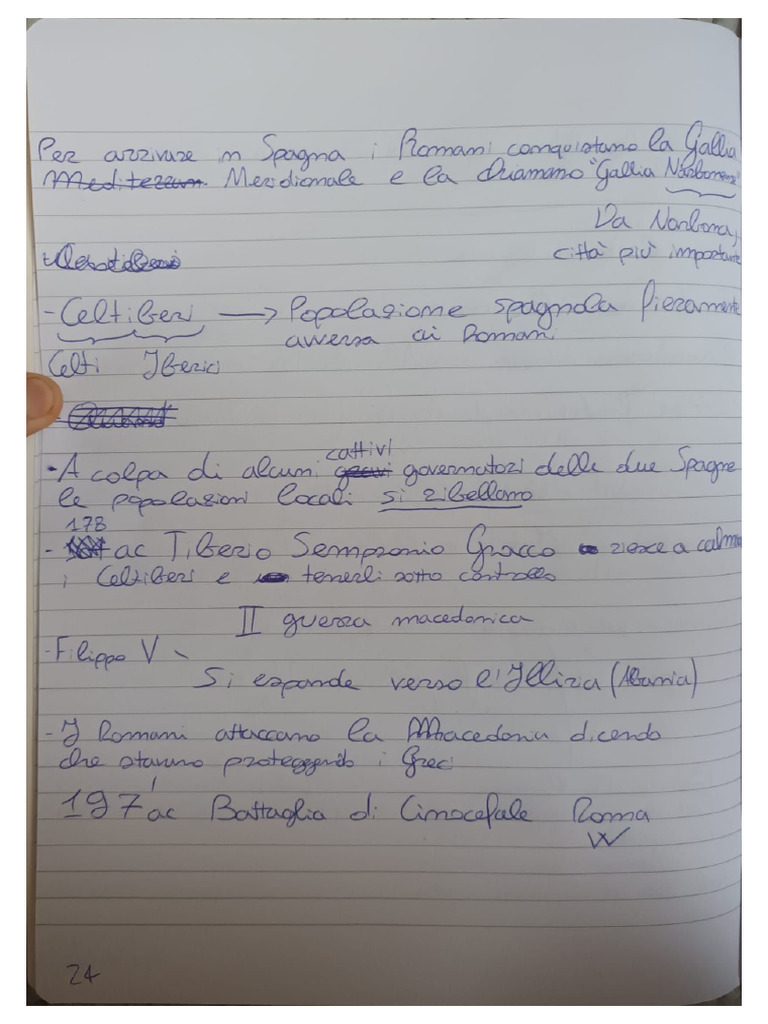 Per arrivare in Spagna i Romani conquistano la Gallia
Mediterran. Meridionale e la chiamano "Gallia Narbonense"
Da Narbona,
città più importante
- Celtiberi → Popolazione spagnola fieramente
avversa ai Romani
Celti Iberici
- A colpa di alcuni cattivi governatori delle due Spagne
le popolazioni locali si ribellano
178
- ac Tiberio Sempronio Gracco riesce a calmare
i Celtiberi e tenerli sotto controllo
II guerra macedonica
- Filippo V
Si espande verso l'Illiria (Albania)
- I Romani attaccano la Macedonia dicendo
che stanno proteggendo i Greci
197 ac Battaglia di Cinocefale Roma
W
24